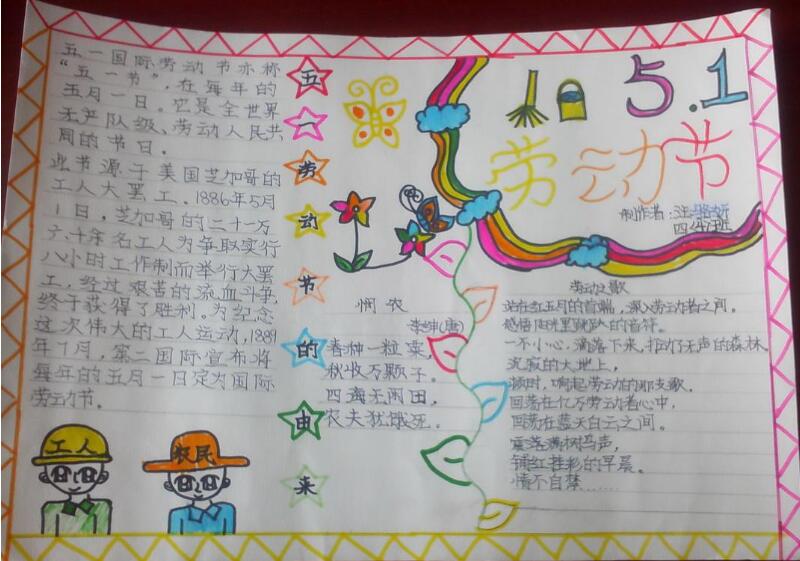 五一国际劳动节亦称
“五一节”,在每年的
五月一日。它是全世界
无产队级、劳动人民共
同的节日。
此节源于美国芝加哥的
工人大罢工.1886年5月
1日,芝加哥的二十一万
六千余名工人为争取实行
八小时工作制而举行大罢
工,经过艰苦的流血斗争,
终于获得了胜利。为纪念
这次伟大的工人运动,1889
年7月,第二国际宣布将
每年的五月一日定为国际
劳动节。
工人
农民
五一劳动节的由来
悯农
李绅(唐)
春种一粒粟,
秋收万颗子。
四海无闲田,
农夫犹饿死。
5.1
劳动节
制作者:汪
四
班
劳动之歌
站在红五月的首端,深入劳动者之间。
感悟阳光里的音符。
一不小心,滴落下来,拍动了无声的森林
沉寂的大地上,
顿时,响起劳动的那支歌。
回荡在亿万劳动者心中,
回荡在蓝天白云之间。
震落满树鸟声,
铺红挂彩的早晨。
情不自禁……